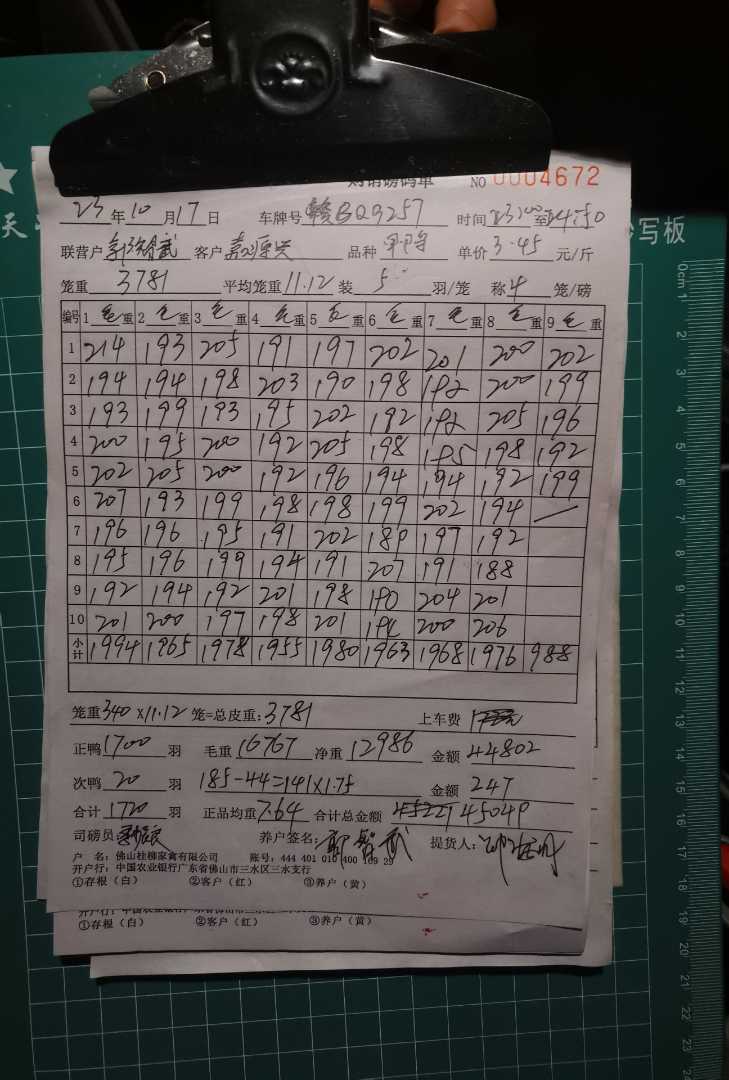 购销磅码单 NO 0004672
23年10月17日 车牌号 赣BQ3257 时间 至
联营户 客户 品种 单价 3.45 元/斤
笼重 3781 平均笼重 11.12 装 5 羽/笼 称 4 笼/磅
编号 1 毛重 2 毛重 3 毛重 4 毛重 5 毛重 6 毛重 7 毛重 8 毛重 9 毛重
1 214 193 205 191 197 202 201 200 202
2 194 194 198 203 190 198 192 200 199
3 193 199 193 195 202 192 192 205 196
4 200 195 200 192 205 198 195 198 192
5 202 205 200 192 196 194 194 192 199
6 207 193 199 198 198 199 202 194 —
7 196 196 195 191 202 189 197 192
8 195 196 199 194 191 207 191 188
9 192 194 192 201 198 190 204 201
10 201 200 197 198 201 194 200 206
小计 1994 1965 1978 1955 1980 1963 1968 1976 988
笼重 340 X 11.12 笼=总皮重: 3781 上车费
正鸭 1700 羽 毛重 16767 净重 12986 金额 44802
次鸭 20 羽 185-44=141X1.75 金额 247
合计 1720 羽 正品均重 7.64 合计总金额 45049
司磅员: 养户签名: 提货人:
户 名: 佛山桂柳家禽有限公司 账号: 444 401 010 400 169 29
开户行: 中国农业银行广东省佛山市三水区三水支行
①存根(白) ②客户(红) ③养户(黄)
①存根(白) ②客户(红) ③养户(黄)
天
抄写板
0cm 1 2 3 4 5 6 7 8 9 10 11 12 13 14 15 16 17 18 19 20 21 22